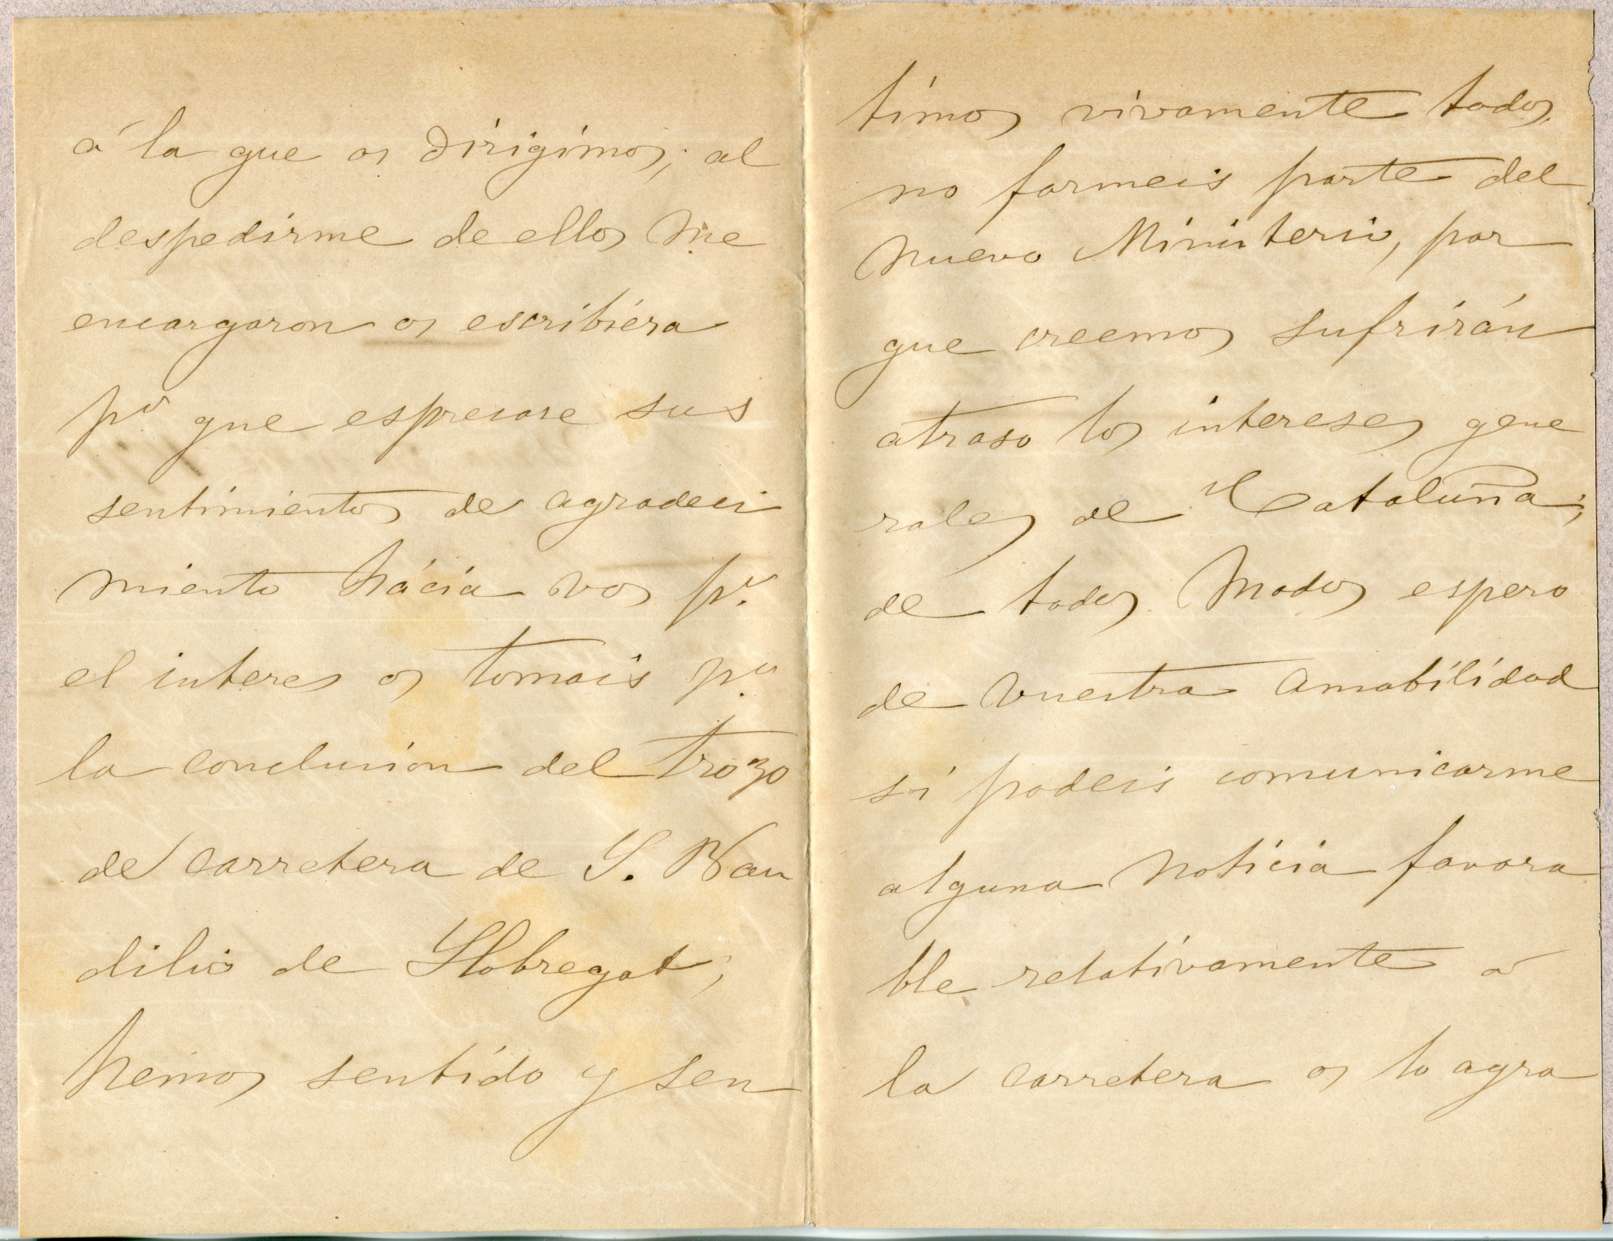 á la que os dirigimos; al
despedirme de ellos me
encargaron os escribiera
pª que espresase sus
sentimientos de agradeci
miento hácia vos pr.
el interes os tomais pª
la conclusion del trozo
de carretera de S. Bau
dilio de Llobregat;
hemos sentido y sen
timos vivamente todos
no formeis parte del
nuevo Ministerio, por
que creemos sufrirán
atraso los intereses gene
rales de Cataluña;
de todos modos espero
de vuestra amabilidad
si podeis comunicarme
alguna noticia favora
ble relativamente á
la carretera os lo agra